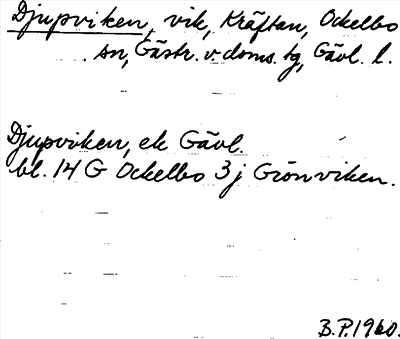 Djupviken, vik, Kräftan, Ockelbo
sn, Gästr. v. doms. tg, Gävl. l.
Djupviken, ek Gävl.
bl. 14 G Ockelbo 3 j Grönviken.
B.P. 1960.